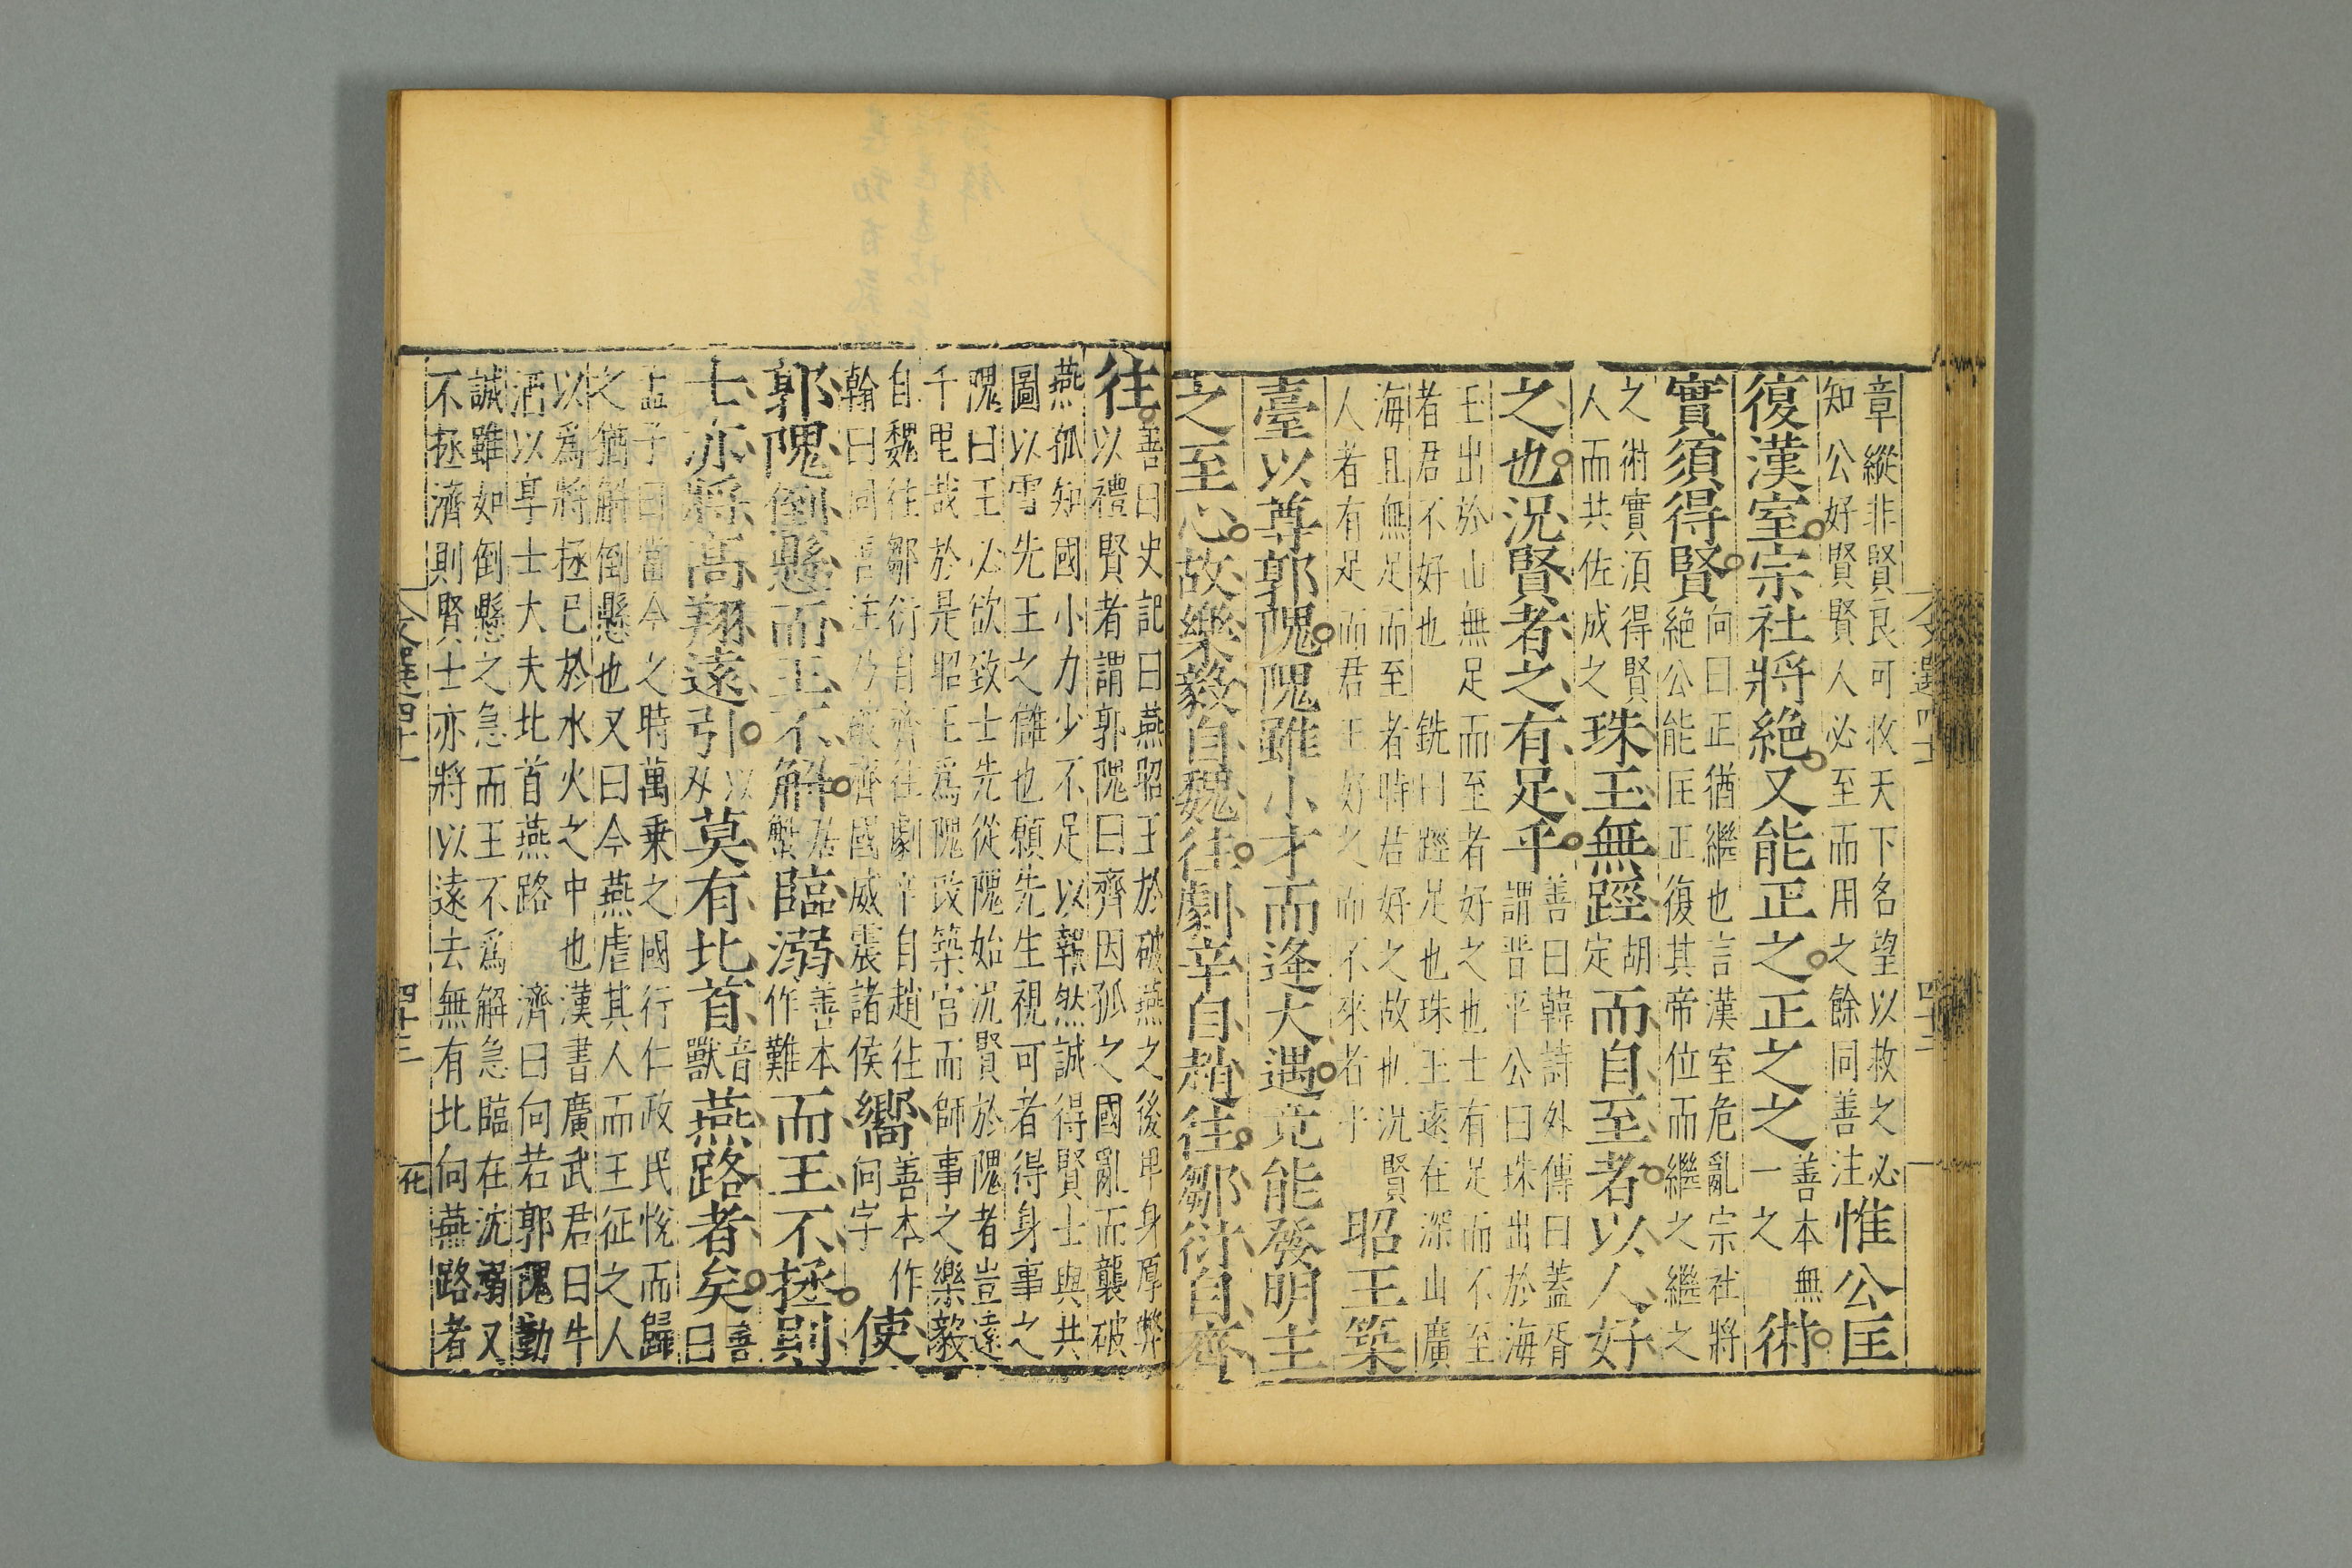 章縱非賢良可收天下名望以救之必
知公好賢賢人必至而用之餘同善注
惟公匡
復漢室宗社將絶又能正之正之之
善本無
一之
術
實須得賢
向曰正猶繼也言漢室危亂宗社將
絶公能匡正復其帝位而繼之繼之
之術實須得賢
人而共佐成之
珠玉無踁
胡
定
而自至者以人好
之也況賢者之有足乎
善曰韓詩外傳曰蓋胥
謂晋平公曰珠出於海
玉出於山無足而至者好之也士有足而不至
者君不好也 銑曰踁足也珠玉遠在深山廣
海且無足而至者時君好之故也況賢
人者有足而君王好之而不來者乎
昭王築
臺以尊郭隗隗雖小才而逢大遇竟能發明主
之至心故樂毅自魏往劇辛自趙往鄒衍自齊
往
善曰史記曰燕昭王於破燕之後卑身厚弊
以禮賢者謂郭隗曰齊因孤之國亂而襲破
燕孤知國小力少不足以報然誠得賢士與共
圖以雪先王之讎也願先生視可者得身事之
隗曰王必欲致士先從隗始況賢於隗者豈遠
千里哉於是昭王爲隗改築宮而師事之樂毅
自魏往鄒衍自齊往劇辛自趙往
翰曰同善注乃破齊國威震諸侯
嚮
善本作
向字
使
郭隗倒懸而王不解
居
蟹
臨溺
善本
作難
而王不拯則
士亦將高翔遠引
以
刄
莫有北首
音
獸
燕路者矣
善
曰
孟子曰當今之時萬乗之國行仁政民悅而歸
之猶解倒懸也又曰今燕虐其人而王征之人
以爲將拯已於水火之中也漢書廣武君曰牛
酒以享士大夫北首燕路 濟曰向若郭隗勤
誠雖如倒懸之急而王不爲解急臨在沈溺又
不拯濟則賢士亦將以遠去無有北向燕路者
文選四十一
四十三
花